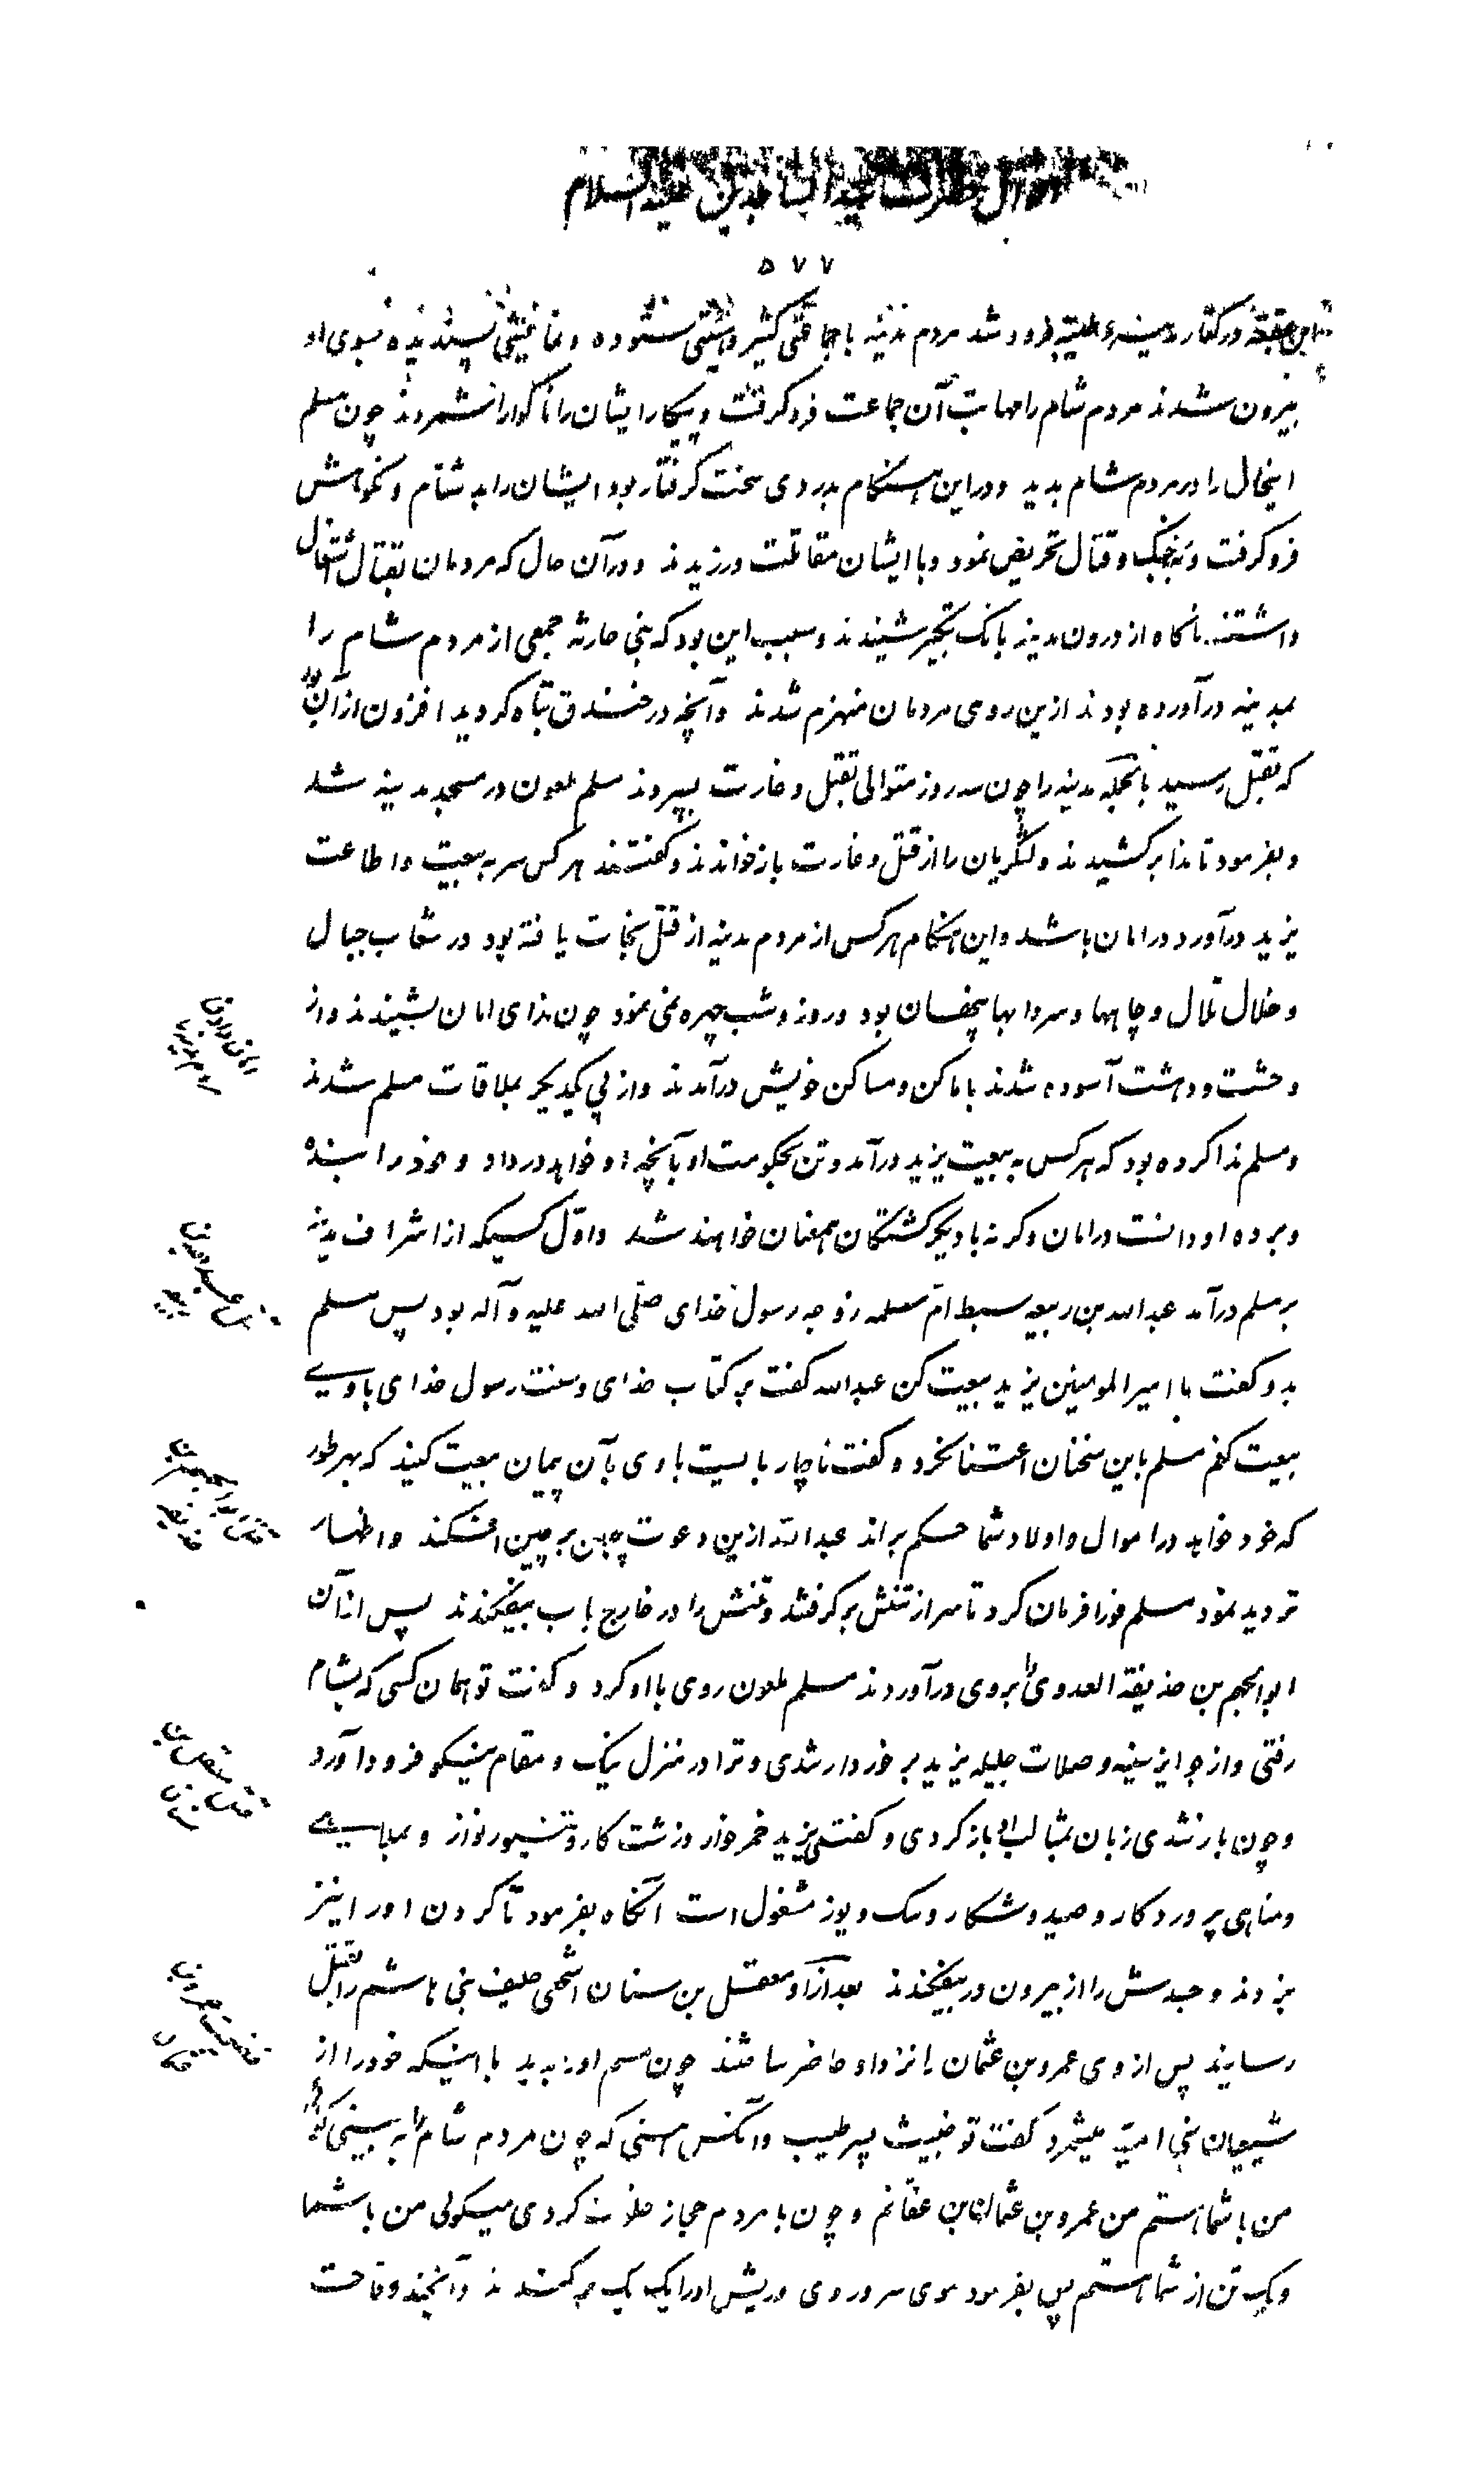 احوال حضرت سید الساجدین علیه السلام
۵۷۷
بن عقبه در کنار مدینه فرود شد مردم مدینه با جماعتی کثیر و هیئتی ستوده و نمایشی پسندیده بسوی او
بیرون شدند مردم شام را مهابت آن جماعت فرو گرفت و پیکار ایشان را ناگوار شمردند چون مسلم
اینحال را در مردم شام بدید و در این هنگام بدردی سخت گرفتار بود ایشان را به شتام و نکوهش
فرو گرفت و بجنگ و قتال تحریض نمود و با ایشان مقاتلت ورزیدند و در آن حال که مردمان بقتال اشتغال
داشتند ناگاه از درون مدینه بانک تکبیر شنیدند و سبب این بود که بنی حارثه جمعی از مردم شام را
بمدینه در آورده بودند ازین روی مردمان منهزم شدند و آنچه در خندق تباه گردید افزون از آن بود
که بقتل رسید بالجمله مدینه را چون سه روز متوالی بقتل و غارت بسپردند مسلم ملعون در مسجد مدینه شد
و بفرمود تا ندا برکشیدند و لشکریان را از قتل و غارت باز خواندند و گفتند هر کس سر به بیعت و اطاعت
یزید در آورد در امان باشد و این هنگام هر کس از مردم مدینه از قتل نجات یافته بود در شعاب جبال
و خلال تلال و چاهها و سردابها پنهان بود و روز و شب چهره نمی نمود چون ندای امان بشنیدند و از
وحشت و دهشت آسوده شدند باماکن و مساکن خویش درآمدند و از پی یکدیگر بملاقات مسلم شدند
و مسلم ندا کرده بود که هر کس به بیعت یزید درآمد و تن بحکومت او بآنچه او خواهد در داد و خود را بنده
و برده او دانست در امان و گرنه با دیگر کشتگان همعنان خواهند شد و اول کسیکه از اشراف مدینه
بر مسلم درآمد عبدالله بن ربیعه سبط ام سلمه زوجه رسول خدای صلی الله علیه و آله بود پس مسلم
بدو گفت با امیرالمومنین یزید بیعت کن عبدالله گفت بر کتاب خدای و سنت رسول خدای با وی
بیعت کنم مسلم باین سخنان اعتنا نکرد و گفت ناچار بایست با وی بآن پیمان بیعت کنید که بهر طور
که خود خواهد در اموال و اولاد شما حکم براند عبدالله ازین دعوت جبین بر چین افکند و اظهار
تردید نمود مسلم فورا فرمان کرد تا سر از تنش برگرفتند و تنش را در خارج باب بیفکندند پس از آن
ابو الجهم بن حذیفة العدوی را بروی درآوردند مسلم ملعون روی با او کرد و گفت تو همان کسی که بشام
رفتی و از جوایز سنیه و صلات جلیله یزید برخوردار شدی و ترا در منزل نیک و مقام نیکو فرود آورد
و چون باز شدی زبان بمثالب او باز کردی و گفتی یزید خمر خوار و زشت کار و تنبور نواز و بملاهی
و مناهی پروردکار و صید و شکار و سک و یوز مشغول است آنگاه بفرمود تا گردن او را نیز
بزدند و جسدش را از بیرون در بیفکندند بعد از او معقل بن سنان اشجعی حلیف بنی هاشم را بقتل
رسانیدند پس از وی عمرو بن عثمان را نزد او حاضر ساختند چون مسلم او را بدید با اینکه خود را از
شیعیان بنی امیه میشمرد گفت تو خبیث پسر طیب و آنکس هستی که چون مردم شام را به بینی گوئی
من با شما هستم من عمرو بن عثمان بن عفانم و چون با مردم حجاز خلوت کردی میگوئی من با شما
و یک تن از شما هستم پس بفرمود موی سر و روی و ریش او را یک یک بر کندند و آنچند وقاحت